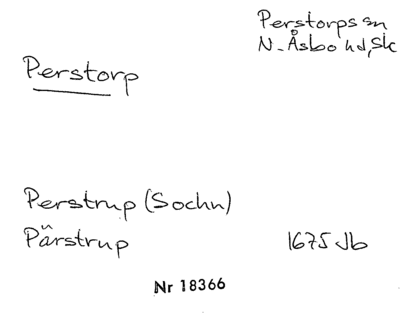 Perstorps sn
N. Åsbo hd, Sk
Perstorp
Perstrup (Sochn)
Pärstrup 1675 Jb
Nr 18366